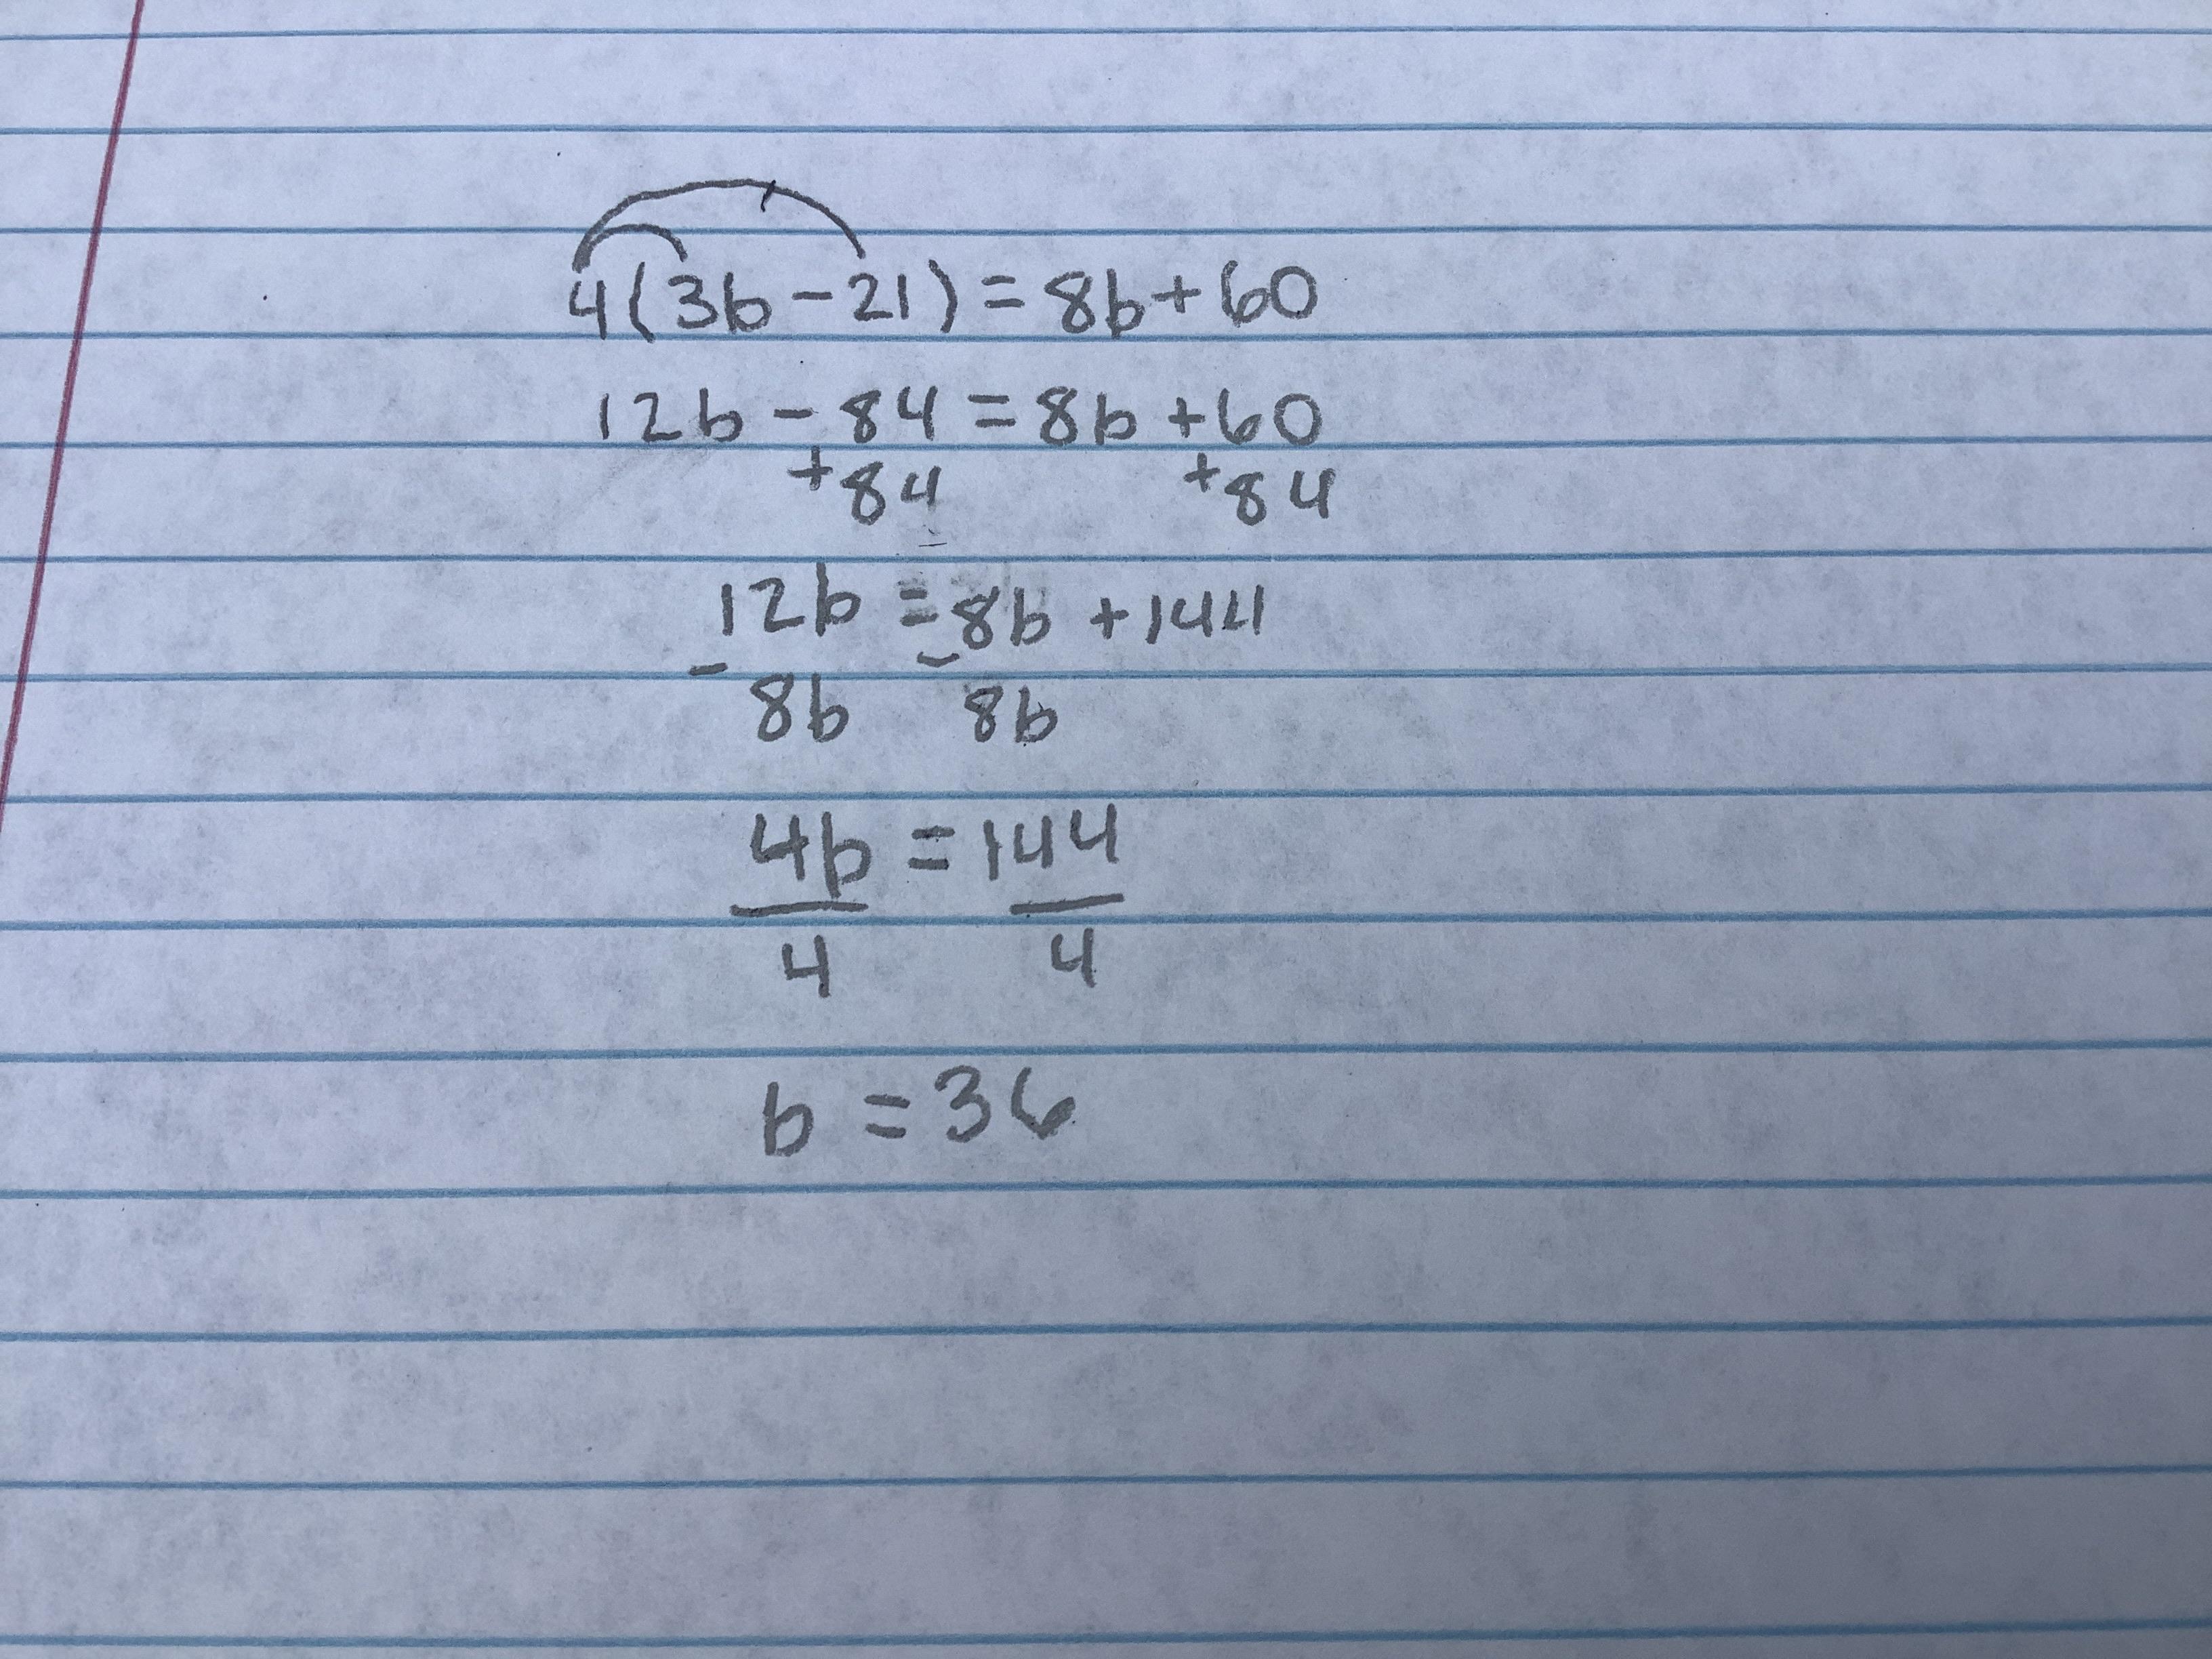 4(3b-21)=8b+60
12b-84=8b+60
+84 +84
12b=8b+144
-8b -8b
4b=144
4 4
b=36